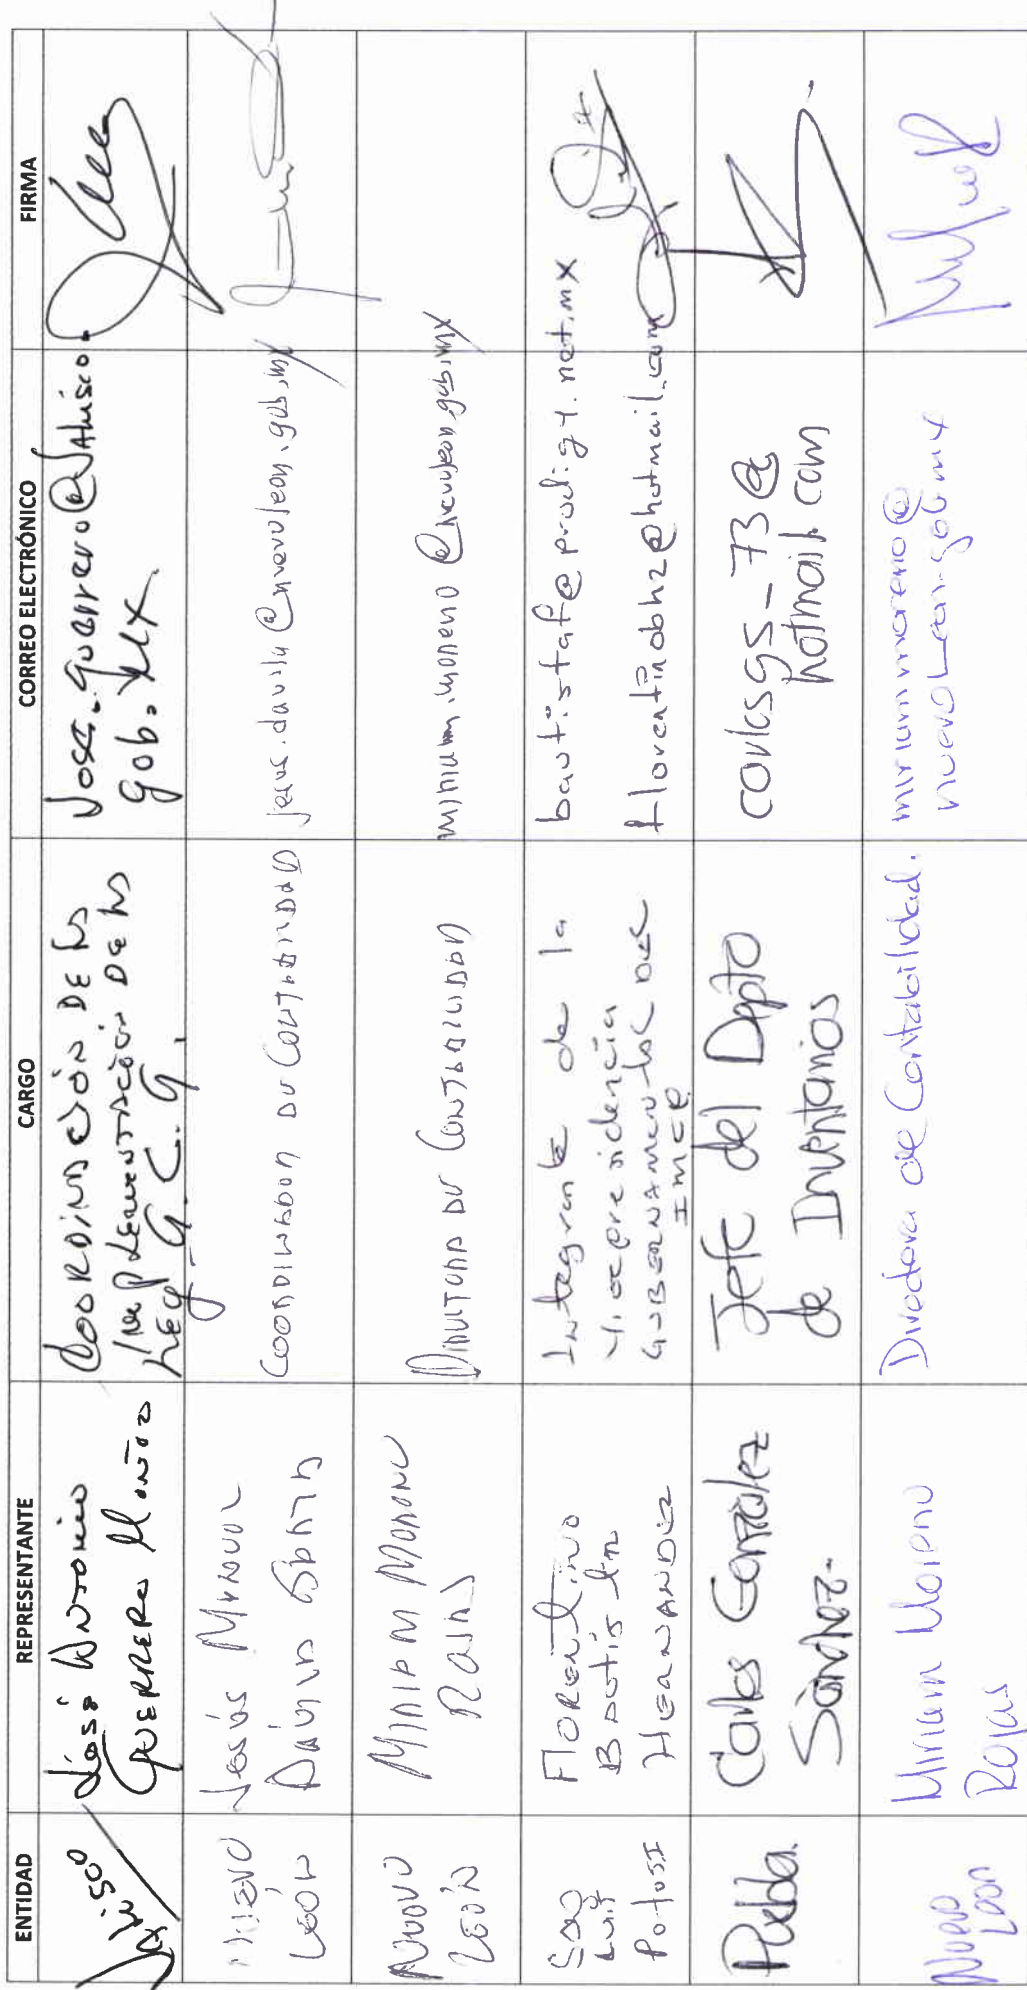 ENTIDAD REPRESENTANTE CARGO CORREO ELECTRÓNICO FIRMA
Jalisco
José Antonio
Guerrero Muñoz
COORDINACIÓN DE LA
IMPLEMENTACIÓN DE LA
LEY G. C. G.
Jose.guerrero@Jalisco.
gob.MX
Nuevo
León
Jesús Manuel
Dávila
COORDINADOR DE CONTABILIDAD
jesus.davila@nuevoleon.gob.mx
Nuevo
León
Miriam Moreno
Rojas
DIRECTORA DE CONTABILIDAD
miriam.moreno@nuevoleon.gob.mx
San
Luis
Potosí
Florentino
Bautista
HERNANDEZ
Integrante de la
Vicepresidencia
GUBERNAMENTAL DEL
IMCP
bautistaf@prodigy.net.mx
florentinobh2@hotmail.com
Puebla.
Carlos González
Sánchez.
Jefe del Depto
de Inventarios
carlosgs_73@
hotmail.com
Nuevo
León
Miriam Moreno
Rojas
Directora de Contabilidad.
miriam.moreno@
nuevoleon.gob.mx